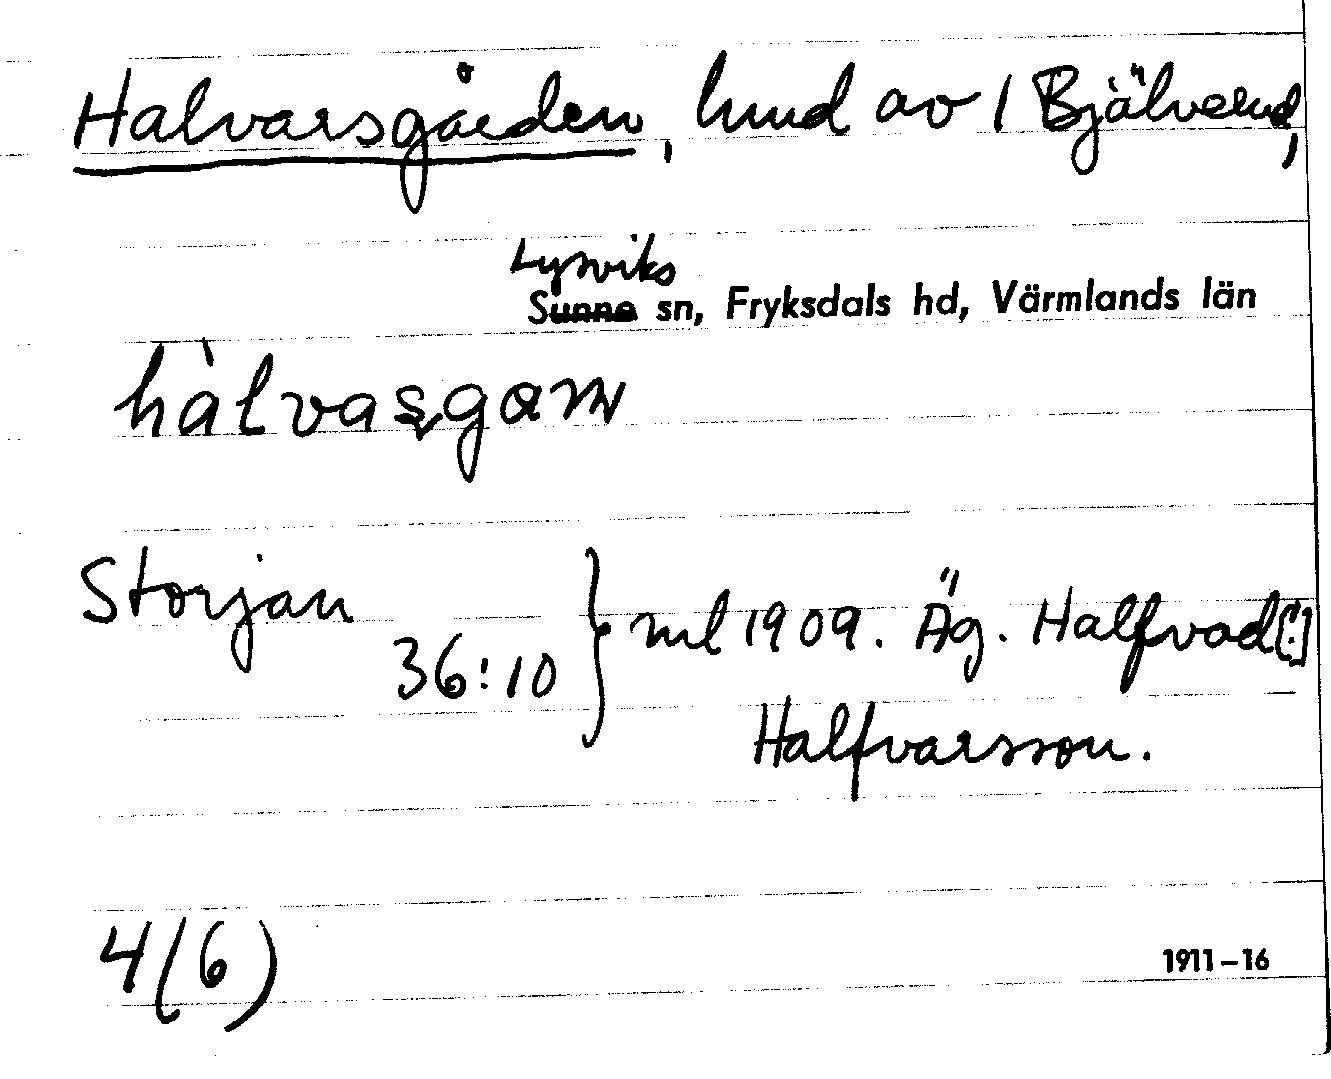 Halvarsgården, hmd av 1 Bjälverud,
Lysviks
Sunne sn, Fryksdals hd, Värmlands län
hàlvasgaɳ
Storjan
36:10 } ml 1909. Äg. Halfvad[!]
Halfvarsson.
4(6)
1911–16